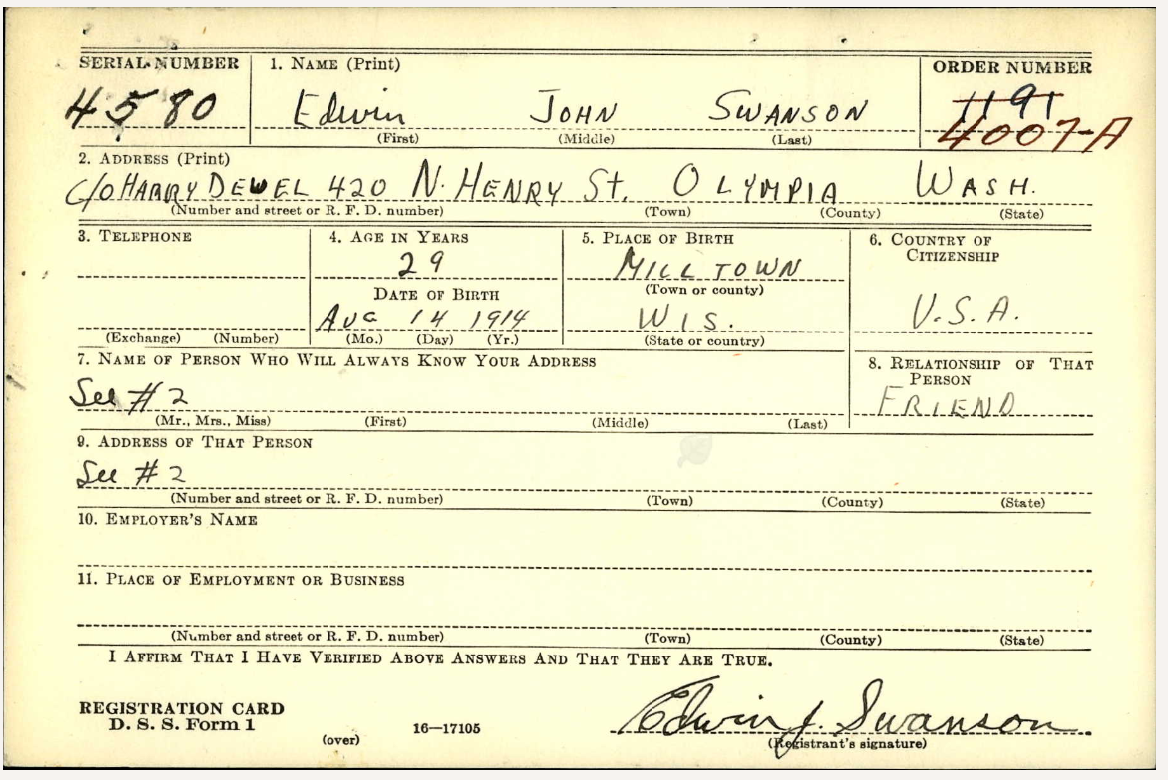 SERIAL NUMBER 1. NAME (Print) ORDER NUMBER
4580 Edwin JOHN SWANSON 1191
(First) (Middle) (Last) 4007-A
2. ADDRESS (Print)
C/O HARRY DEWEL 420 N. HENRY St. OLYMPIA WASH.
(Number and street or R. F. D. number) (Town) (County) (State)
3. TELEPHONE 4. AGE IN YEARS 5. PLACE OF BIRTH 6. COUNTRY OF CITIZENSHIP
29 MILLTOWN
DATE OF BIRTH (Town or county)
AUG 14 1914 WIS. U.S.A.
(Exchange) (Number) (Mo.) (Day) (Yr.) (State or country)
7. NAME OF PERSON WHO WILL ALWAYS KNOW YOUR ADDRESS 8. RELATIONSHIP OF THAT PERSON
See #2 FRIEND
(Mr., Mrs., Miss) (First) (Middle) (Last)
9. ADDRESS OF THAT PERSON
See #2
(Number and street or R. F. D. number) (Town) (County) (State)
10. EMPLOYER'S NAME
11. PLACE OF EMPLOYMENT OR BUSINESS
(Number and street or R. F. D. number) (Town) (County) (State)
I AFFIRM THAT I HAVE VERIFIED ABOVE ANSWERS AND THAT THEY ARE TRUE.
REGISTRATION CARD
D. S. S. Form 1 16—17105 Edwin J. Swanson
(over) (Registrant's signature)